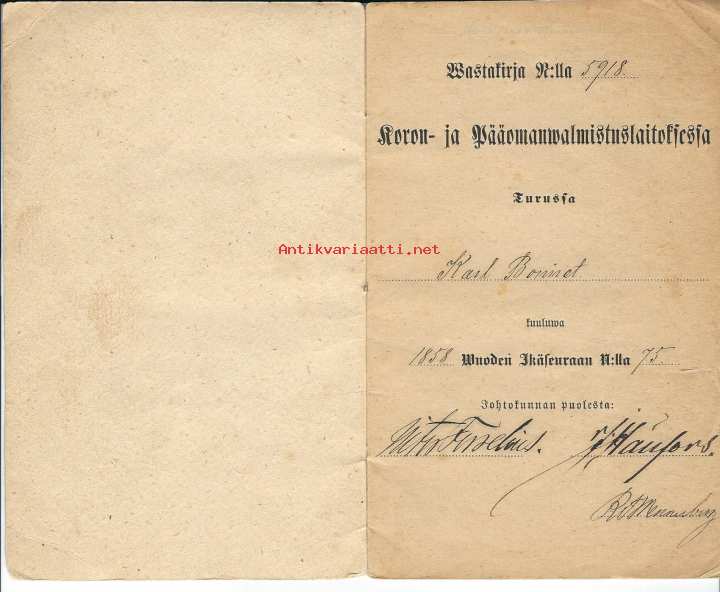 Wastakirja N:lla 5918.
Koron- ja Pääomanwalmistuslaitoksessa
Turussa
Antikvariaatti.net
Karl Bonnet
kuuluwa
1858 Wuoden Ikäseuraan N:lla 75.
Johtokunnan puolesta: